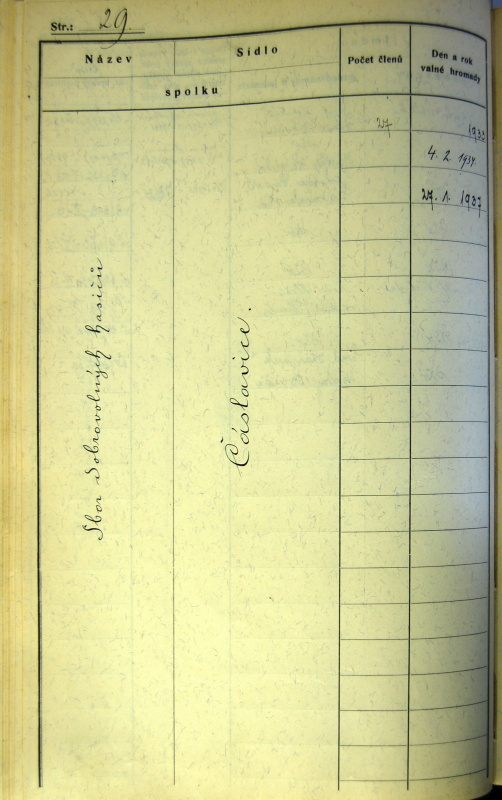 Str.: 29.
Název
Sídlo
spolku
Počet členů
Den a rok
valné hromady
27
1933
4. 2. 1934.
27. 1. 1937
Sbor dobrovolných hasičů
Čáslavice.